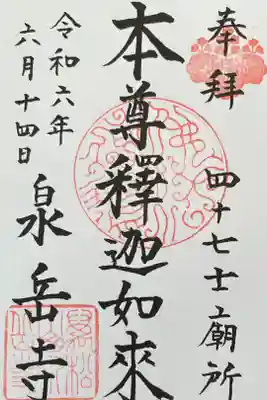 奉拜
四十七士廟所
本尊釋迦如來
令和六年
六月十四日
泉岳寺